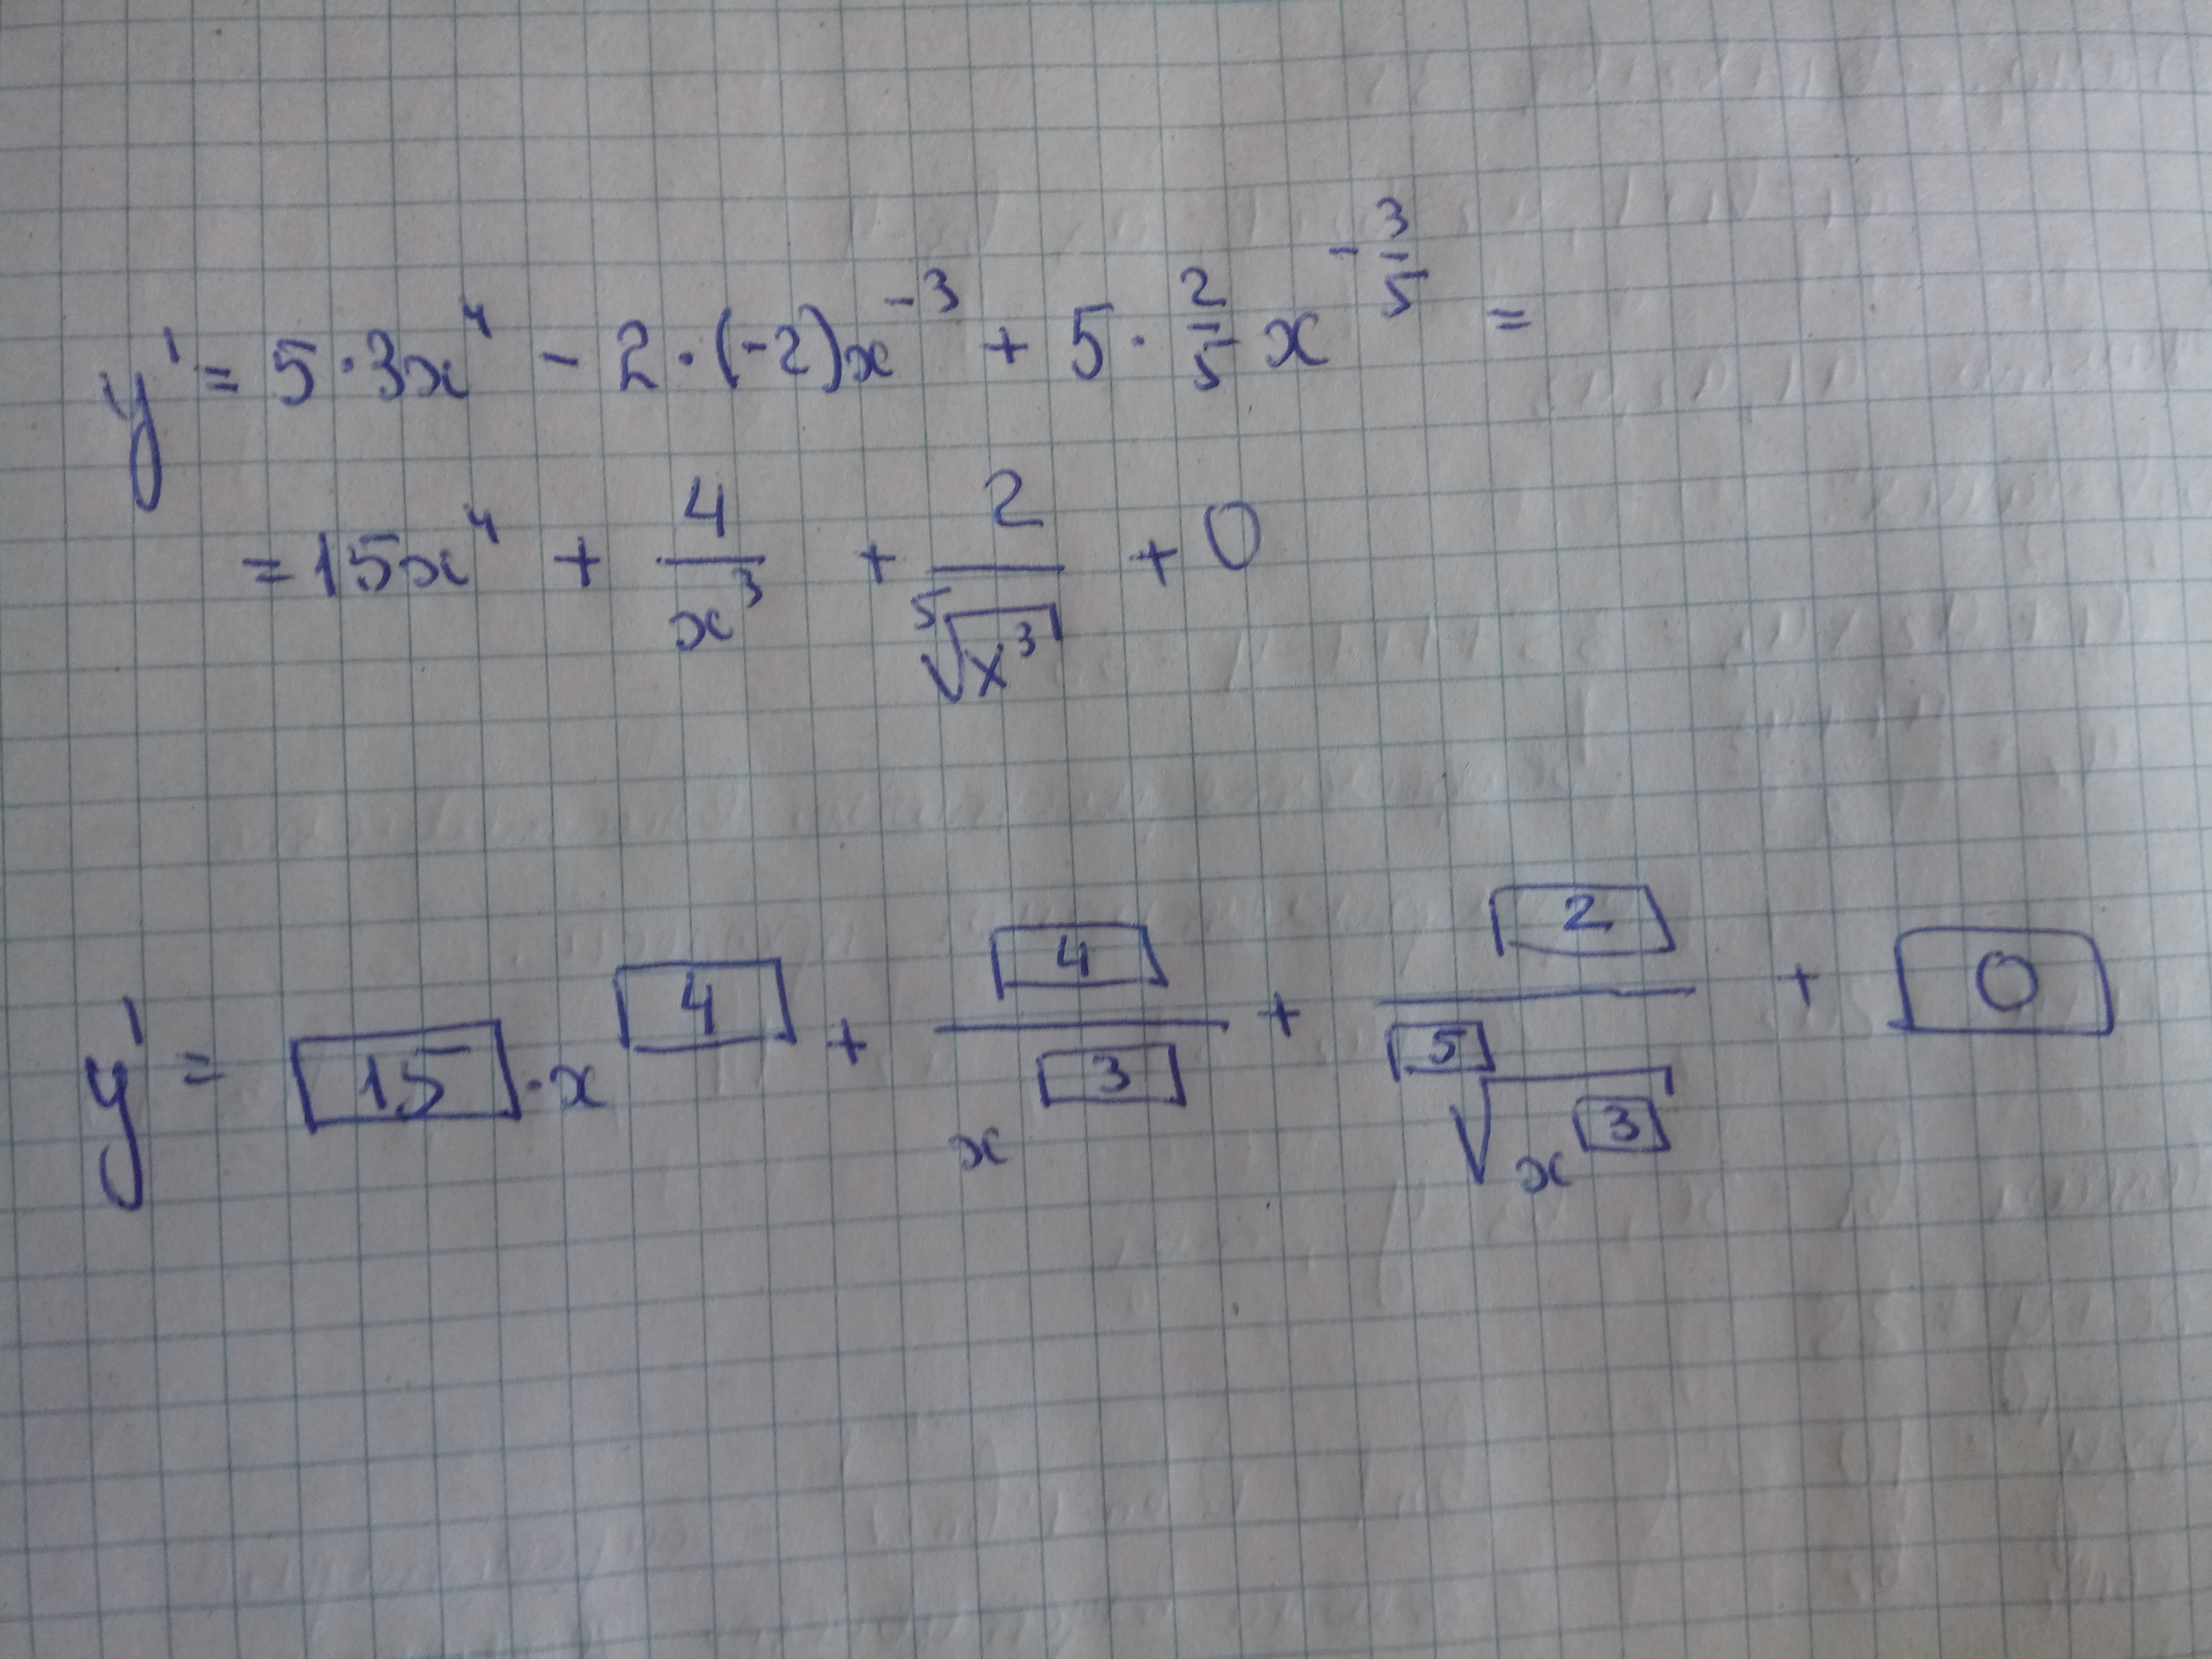 y' = 5·3x⁴ - 2·(-2)x⁻³ + 5·2/5 x^(-3/5) =
= 15x⁴ + 4/x³ + 2/⁵√x³ + 0
y' = 15·x⁴ + 4/x³ + 2/⁵√x³ + 0